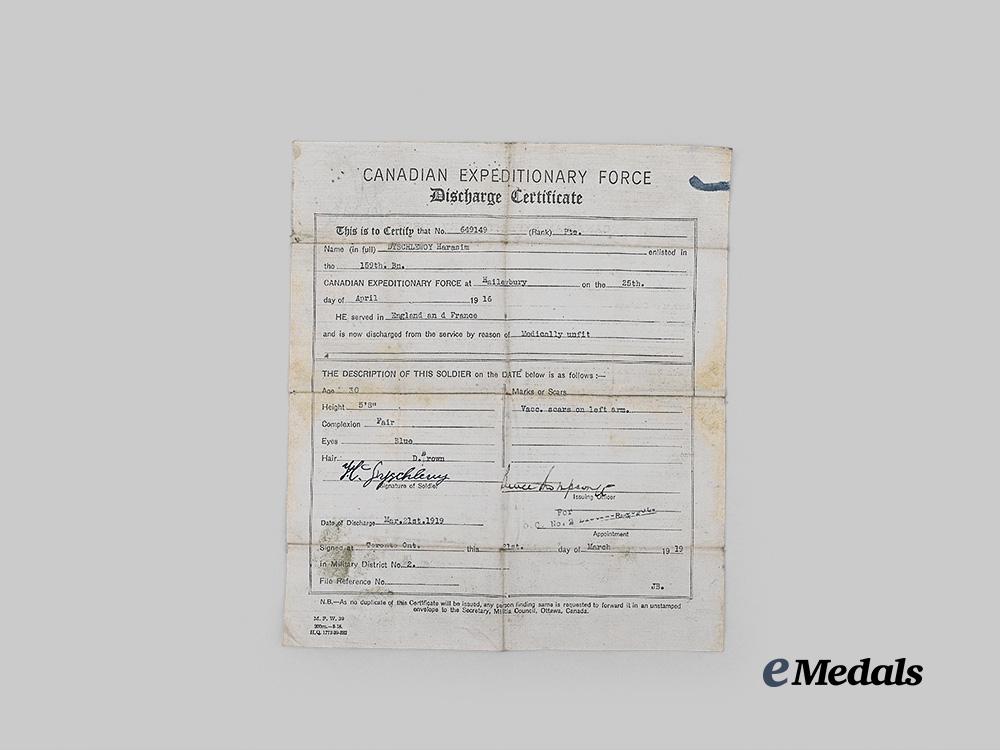 CANADIAN EXPEDITIONARY FORCE
Discharge Certificate
This is to Certify that No. 649149 (Rank) Pte.
Name (in full) DYSCHLEWOY Harasim enlisted in
the 159th. Bn.
CANADIAN EXPEDITIONARY FORCE at Haileybury on the 25th.
day of April 19 16
HE served in England an d France
and is now discharged from the service by reason of Medically unfit
THE DESCRIPTION OF THIS SOLDIER on the DATE below is as follows :—
Age 30 Marks or Scars
Height 5'8" Vacc. scars on left arm.
Complexion Fair
Eyes Blue
Hair D.Brown
Signature of Soldier Issuing Officer
For
O.C. No. 2
Date of Discharge Mar.21st.1919
Appointment
Signed at Toronto Ont. this 21st. day of March 19 19
In Military District No. 2.
File Reference No. JB.
N.B.—As no duplicate of this Certificate will be issued, any person finding same is requested to forward it in an unstamped
envelope to the Secretary, Militia Council, Ottawa, Canada.
M. F. W. 39
H.Q. 1772-39-882
eMedals